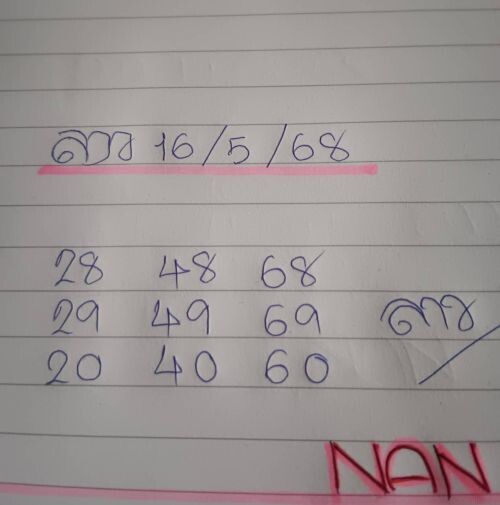 ลาว 16/5/68
28 48 68
29 49 69 ลาว
20 40 60
NAN